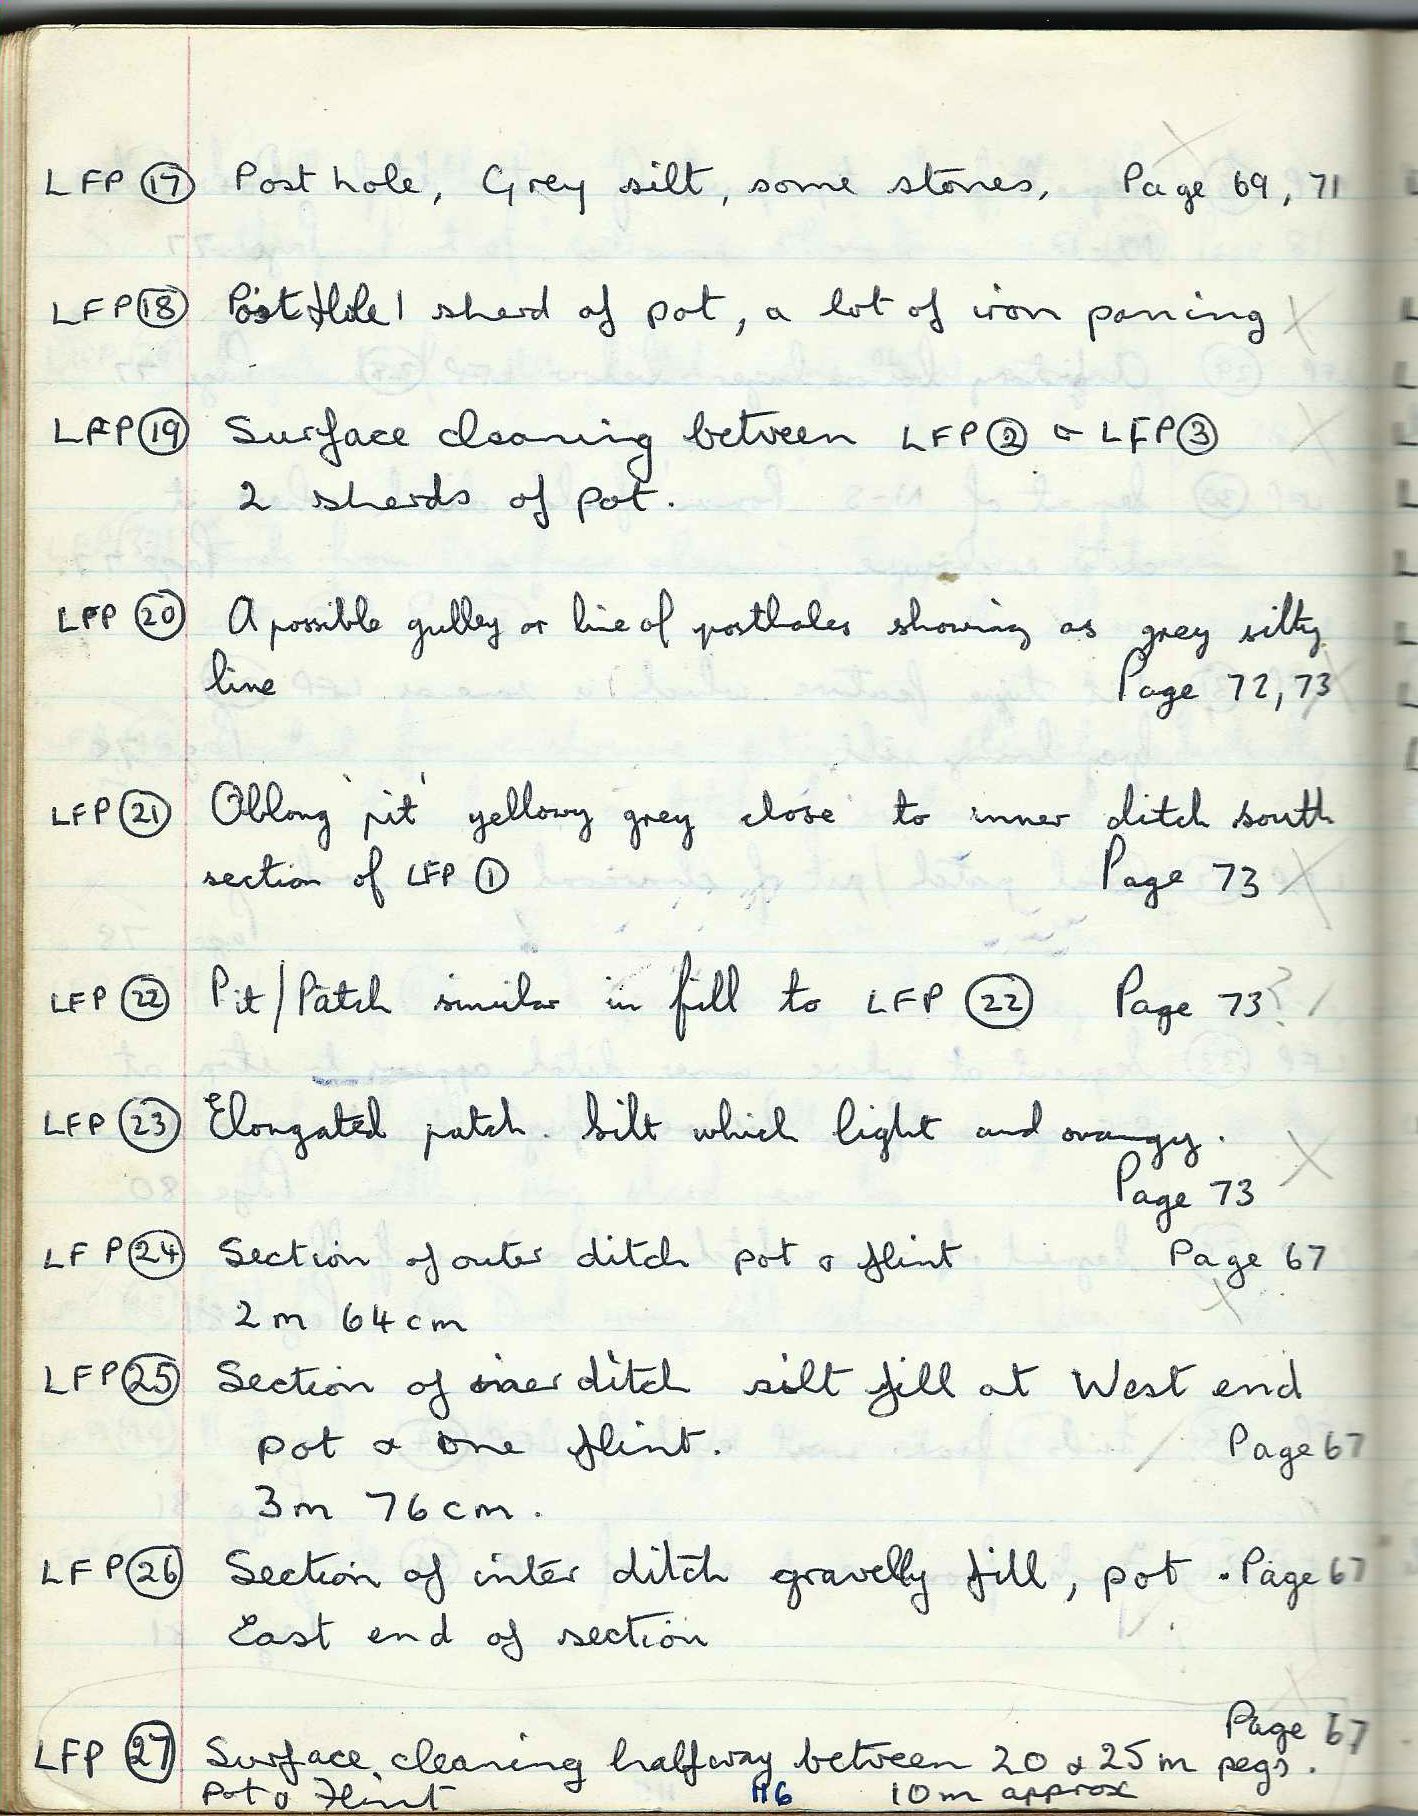 LFP 17 Post hole, Grey silt, some stones, Page 69, 71
LFP 18 Post Hole 1 sherd of pot, a lot of iron panning
LFP 19 Surface cleaning between LFP 2 & LFP 3
2 sherds of pot.
LFP 20 A possible gulley or line of postholes showing as grey silty
line Page 72, 73
LFP 21 Oblong 'pit' yellowy grey close to inner ditch south
section of LFP 1
Page 73
LFP 22 Pit/Patch similar in fill to LFP 22 Page 73 ?
LFP 23 Elongated patch. Silt which light and orangy.
Page 73
LFP 24 Section of outer ditch pot & flint Page 67
2m 64cm
LFP 25 Section of inner ditch silt fill at West end
pot & one flint. Page 67
3m 76cm.
LFP 26 Section of inter ditch gravelly fill, pot. Page 67
East end of section
Page 67
LFP 27 Surface cleaning halfway between 20 & 25m pegs.
Pot & Flint H6 10m approx